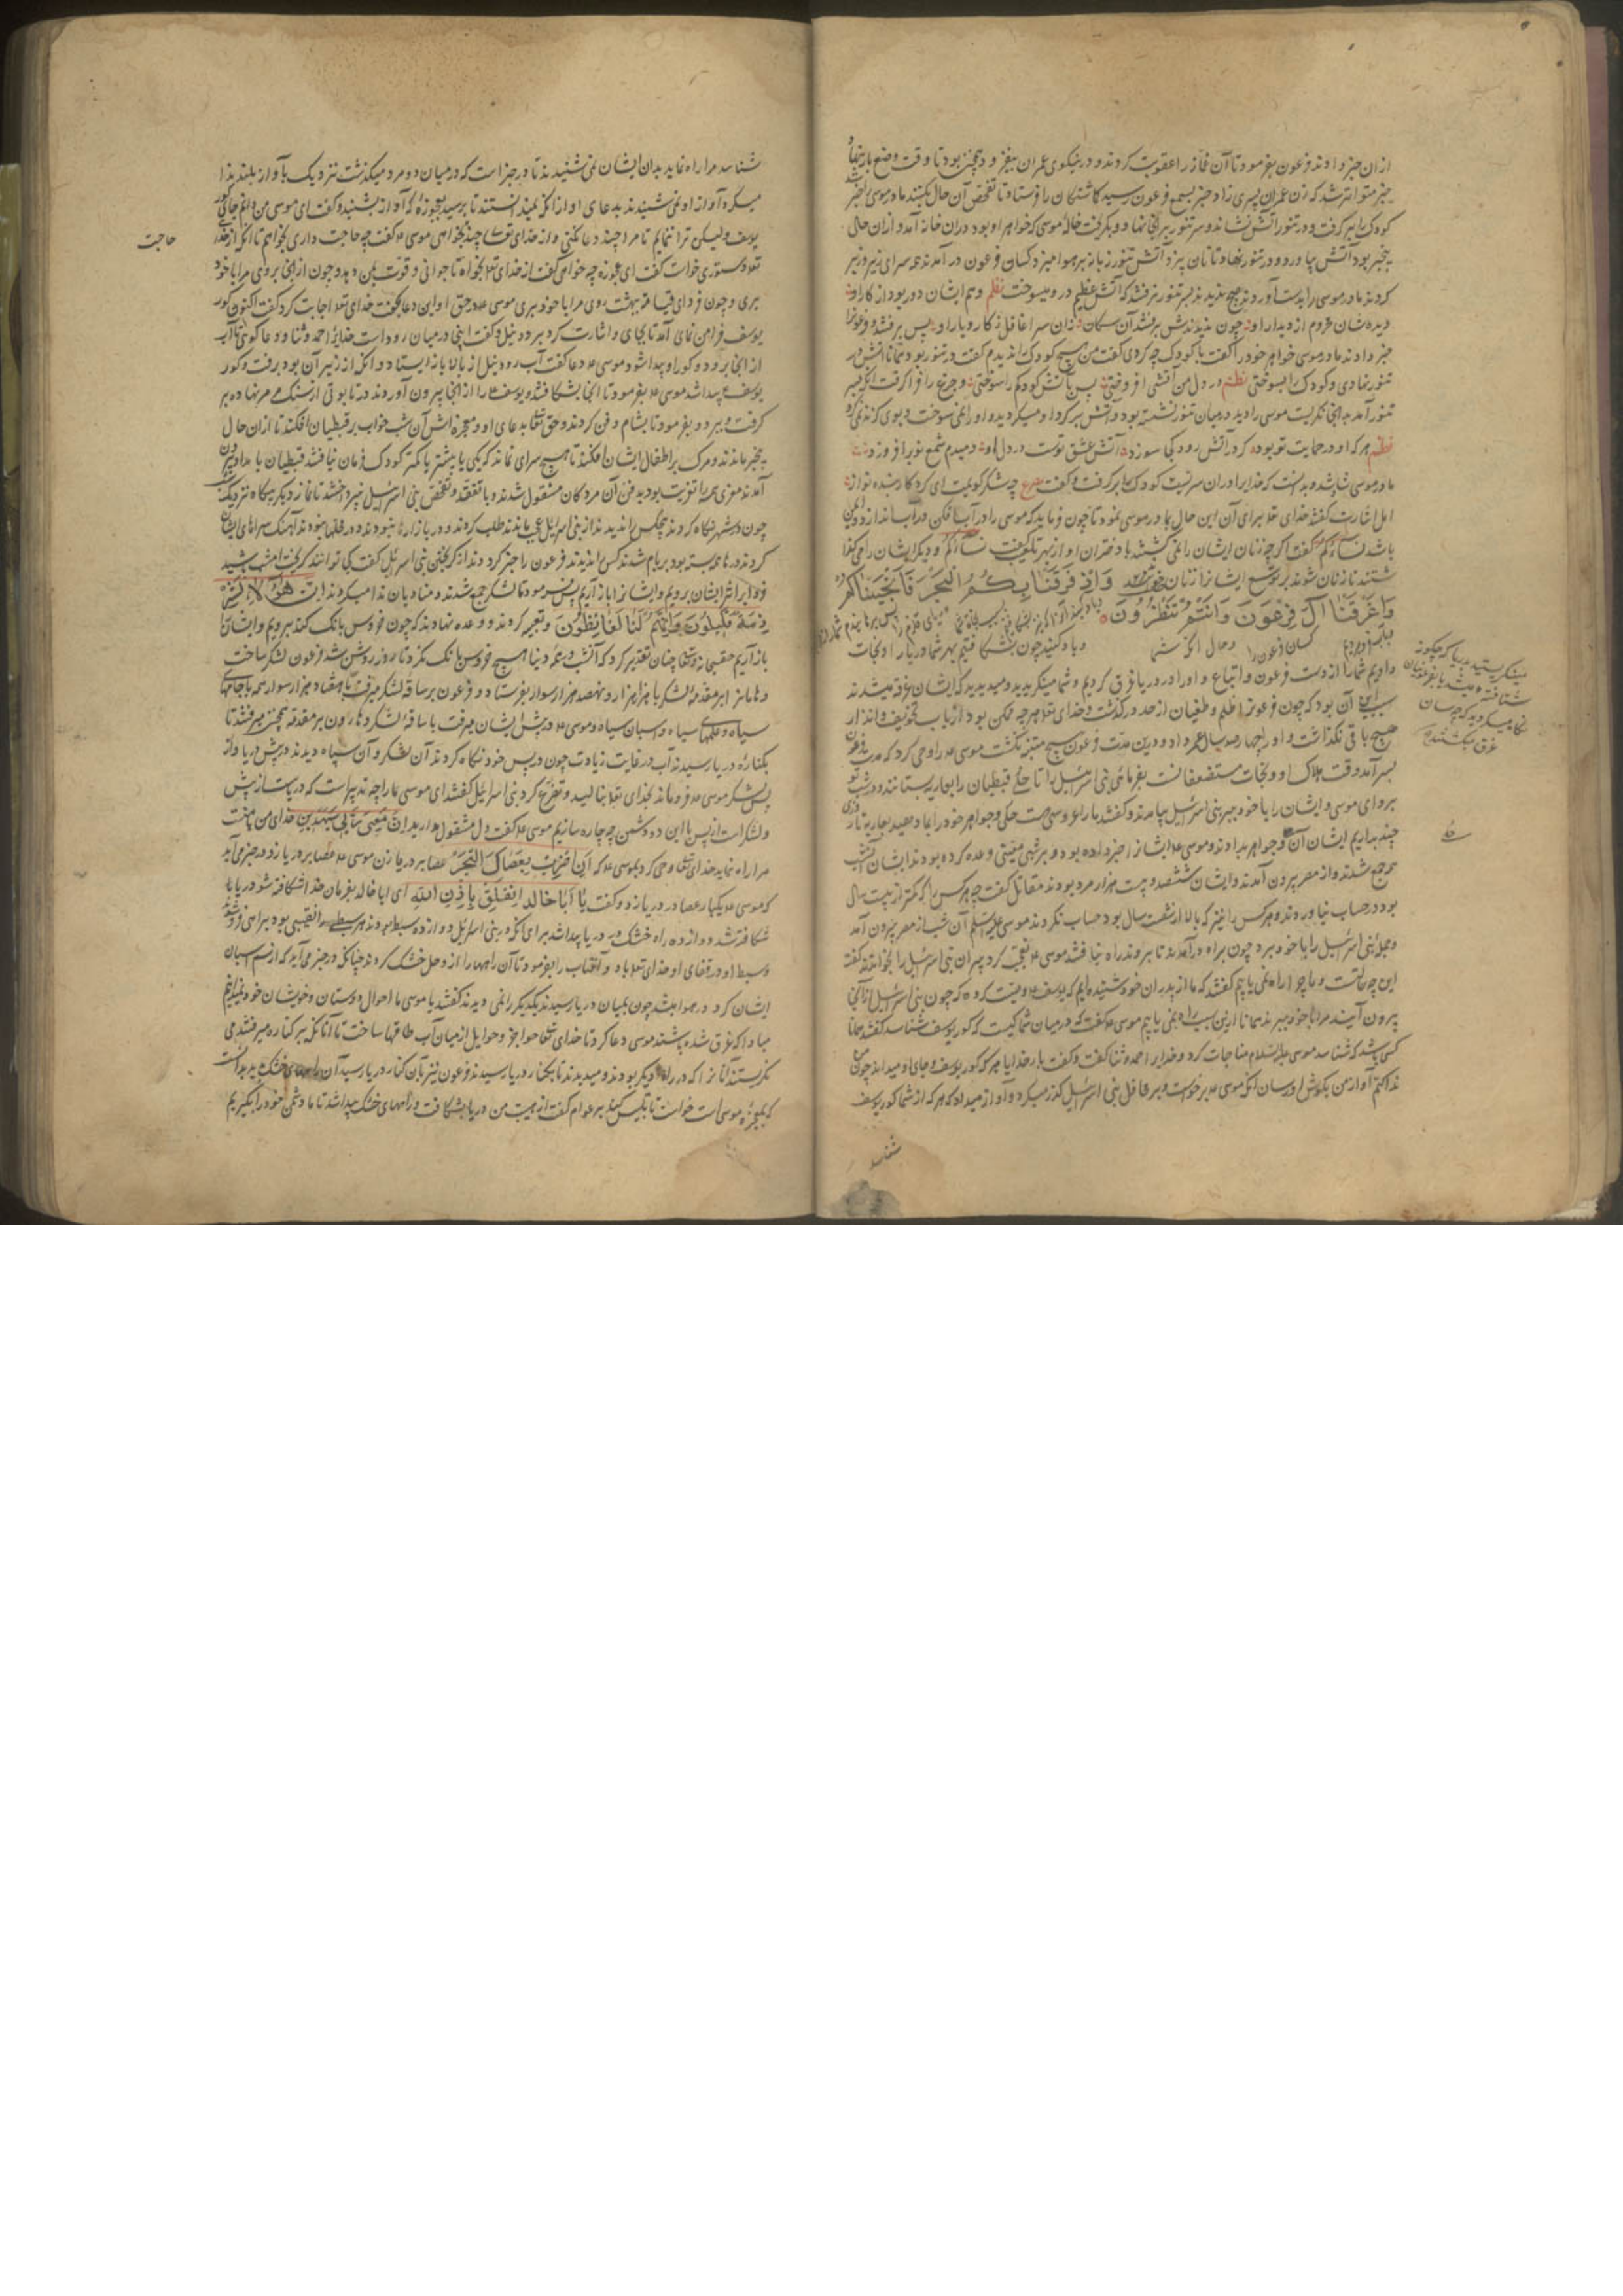 ازان خبر دادند فرعون بفرمود تا آن غماز را عقوبت کردند و در نیکوی عمران بیفزود و همچنین بود تا وقت وضع بار نهاد
خبر متواتر شد که زن عمران پسری زاد خبر بسمع فرعون رسید کماشتکان را فرستاد تا تفحص آن حال بکنند مادر موسی را خبر شد
کودک را بر کرفت و در تنور آتش نشانده و سر تنور بر انجا نهاد و بکریخت خاله موسی که خواهر او بود دران خانه آمد و ازان حال
بیخبر بود آتش بیاورد و در تنور نهاد تا نان پزد آتش تنور زبانه بر هوا میزد کسان فرعون در آمدند همه سرای زیر و زبر
کردند مادر موسی را بدست آوردند هیچ ندیدند بسر تنور نرفتند که آتش عظیم درو میسوخت نظم وهم ایشان دور بود از کار او
دیده شان محروم از دیدار او چون ندیدندش برفتند آن سکان زان سرا غافل ز کار و بار او پس برفتند و فرعون را
خبر دادند مادر موسی خواهر خود را گفت با کودک چه کردی گفت من هیچ کودک را ندیدم گفت در تنور بود تو آتش در
تنور نهادی و کودک را بسوختی نظم در دل من آتشی افروختی پس بآتش کودکم را سوختی و جزع را فرا کرفت انکه بسر
تنور آمد بدانجا نکریست موسی را دید در میان تنور نشسته بود و آتش بر کرد او میکردید و او را نمی سوخت و بوی کزند نمی کرد
نظم هر که او در حمایت تو بود کر در آتش رود کجا سوزد آتش عشق توست در دل او دمبدم شمع نو برافروزد
مادر موسی شاد شد و بدانست که خدایرا دران سریست کودک را بر کرفت و گفت مصرع چه شکر کویمت ای کردکار بنده نواز
اهل اشارت گفتند خدای تعا برای آن این حال با مادر موسی نمود تا چون فرماید که موسی را در آب افکن در آب اندازد و ایمن
باشد نساءکم گفت اکر چه زنان ایشان را نمی کشتند با دختران او از بهر تغلیب گفت نساءکم و دیکر ایشان را می کذا
شتند تا زنان شوند بر توسع ایشانرا زنان خواند وَإِذْ فَرَقْنَا بِكُمُ الْبَحْرَ فَأَنْجَيْنَاكُمْ
وَأَغْرَقْنَا آلَ فِرْعَوْنَ وَأَنْتُمْ تَنْظُرُونَ
و یاد کنید چون بشکافتیم بهر شما دریا را و نجات
کسان فرعون را و حال انکه شما
دادیم شما را از دست فرعون و اتباع و او را در دریا غرق کردیم و شما مینکریدید و میدیدید که ایشان غرقه میشدند
سبب این آن بود که چون فرعون را ظلم و طغیان از حد در کذشت و خدای تعا هر چه ممکن بود از باب تخویف و انذار
هیچ باقی نکذاشت و او را چهار صد سال عمر داد و درین مدت فرعون هیچ متنبه نکشت موسی را وحی کرد که مدت فرعون
بسر آمد و وقت هلاک او و نجات مستضعفانست بفرمای بنی اسرئیل را تا حلی قبطیان را بعاریت بستانند و در شب تو
ببر دای موسی و ایشان را با خود ببر بنی اسرئیل بیامدند و گفتند ما را عروسی هست حلی و جواهر خود را بما دهید بعاریت تا روزی
چند بداریم ایشان آن جواهر بدادند و موسی ایشانرا خبر داده بود و بر شبی معینی وعده کرده بودند ایشان آن شب
جمع شدند و از مصر بیرون آمدند و ایشان ششصد و بیست هزار مرد بودند مقاتل گفت چه هر کس را که کمتر از بیست سال
بود در حساب نیاوردند و هر کس را نیز که بالا از شصت سال بود حساب نکردند موسی علیه السلم آن شب از مصر بیرون آمد
و جمله بنی اسرئیل را با خود ببرد چون براه در آمدند تا بروند راه نیافتند موسی تعجب کرد پیران بنی اسرئیل را بخواندند گفت
این چه حالتست و ما چرا راه نمی یابیم گفتند که ما از پدران خود شنیده ایم که یوسف وصیت کرده که چون بنی اسرئیل از اینجا
بیرون آیند مرا با خود ببرند همانا ازین سبب راه نمی یابیم موسی گفت که در میان شما کیست که کور یوسف شناسد گفتند همانا
کسی باشد که شناسد موسی علیه السلام مناجات کرد و خدایرا حمد و ثنا گفت و گفت بار خدایا هر که کور یوسف و جای او میداند چون من
ندا کنم آواز من بکوش او رسان انکه موسی برخاست و بر قافل بنی اسرئیل کذر میکرد و آواز میداد که هر که از شما کور یوسف
شناسد
مینکریستید بدریا که چکونه
شکافته میشد یا بفرعونیان
نکاه میکردید که چسان
غرق میکشتند
شناسد مرا راه نماید بدان ایشان نمی شنیدند تا در خبر است که در میان دو مرد میکذشت نزدیک بآواز بلند ندا
میکرد آواز او نمی شنیدند بدعای او از انکه نمیدانستند تا برسید بعجوزه که آواز بشنید و گفت ای موسی من دانم جای کور
یوسف ولیکن ترا ننمایم تا مرا چند دعا نکنی و از خدای تعا چند نخواهی موسی گفت چه حاجت داری بخواهم تا انکه از خدا
تعا دستوری خواست گفت ای عجوزه چه خواهی گفت از خدای تعا بخواه تا جوانی و قوت بمن دهد و چون از انجا بروی مرا با خود
بری و چون فردای قیامت ببهشت روی مرا با خود بری موسی در حق او این دعا بگفت خدای تعا اجابت کرد گفت اکنون کور
یوسف فرا من نمای آمد تا بجای و اشارت کرد برود نیل و گفت اینجا در میان رود است خدایرا حمد و ثنا و دعا کوی تا آب
از انجا برود و کور او پیدا شود موسی دعا گفت آب رود نیل از بالا باز ایستاد و انکه از زیر آن بود برفت و کور
یوسف پیدا شد موسی بفرمود تا انجا بشکافتند و یوسف را از انجا بیرون آوردند در تابوتی از سنک مرمر نهاده بر
کرفت و ببرد و بفرمود تا بشام دفن کردند و حق تعا بدعای او و معجزه اش آن شب خواب بر قبطیان افکند تا ازان حال
بیخبر ماندند و مرک بر اطفال ایشان افکند تا هیچ سرای نماند که یکی یا بیشتر یا کمتر کودک فرمان نیافتند قبطیان بامداد بیرون
آمدند هر یکی را تعزیت بود بدفن آن مردکان مشغول شدند و با تفقد و تفحص بنی اسرئیل نپرداختند تا نماز دیکر بیکاه نزدیک
چون در شهر نکاه کردند هیچکس را ندیدند از بنی اسرئیل عجب ماندند طلب کردند و در بازارها نبودند و در محلها نبودند آهنک سراهای ایشان
کردند درها بسته بود بر بام شدند کس را ندیدند فرعون را خبر کردند از کریختن بنی اسرئیل گفت کی توانند کریخت امشب باشید
فردا بر اثر ایشان برویم و ایشانرا باز آریم پس بفرمود تا لشکر جمع شدند و منادیان ندا میکردند إِنَّ هَؤُلَاءِ لَشِرْ
ذِمَةٌ قَلِيلُونَ وَإِنَّهُمْ لَنَا لَغَائِظُونَ و تعبیه کردند و وعده نهادند که چون خروس بانک کند برویم و ایشانرا
باز آریم حقسبحانه و تعا چنان تقدیر کرد که آن شب در همه دنیا هیچ خروس بانک نکرد تا روز روشن شد فرعون لشکر ساخت
و هامان را بر مقدمه لشکر با هزار هزار و نهصد هزار سوار بفرستاد و فرعون بر ساقه لشکر میرفت با هفتاد هزار سوار همه با جامهای
سیاه و علمهای سیاه و اسبان سیاه و موسی در پیش ایشان میرفت با ساقه لشکر و هارون بر مقدمه همچنین میرفتند تا
بکناره دریا رسیدند آب در غایت زیادت چون در پس خود نکاه کردند آن لشکر و آن سپاه دیدند در پیش دریا و از
پس لشکر موسی فرو ماند بخدای تعا بنالید و تضرع کرد بنی اسرائیل گفتند ای موسی ما را چه تدبیر است که دریاست از پیش
و لشکر است از پس با این دو دشمن چه چاره سازیم موسی گفت دل مشغول مدارید إِنَّ مَعِيَ رَبِّي سَيَهْدِينِ خدای من با منست
مرا راه نماید خدای تعا وحی کرد بموسی که أَنِ اضْرِبْ بِعَصَاكَ الْبَحْرَ عصا بر دریا زن موسی عصا بر دریا زد در خبر می آید
که موسی یکبار عصا در دریا زد و گفت یَا أَبَا خَالِد انْفَلِقْ بِإِذْنِ اللَّهِ ای ابا خالد بفرمان خدا شکافته شو دریا
شکافته شد و دوازده راه خشک در دریا پیدا شد برای انکه بنی اسرائیل دوازده سبط بودند هر سبطی را نقیبی بود براهی فرو شد
و سبط او در قفای او خدای تعا باد و آفتاب را بفرمود تا آن راهها را از وحل خشک کردند چنانکه در خبر می آید که از سم اسبان
ایشان کرد در هوا میشد چون بمیان دریا رسیدند یکدیکر را نمی دیدند گفتند یا موسی ما احوال دوستان و خویشان خود نمیدانیم
مبادا که غرق شده باشند موسی دعا کرد تا خدای تعا حواجز و حوایل از میان آب طاقها ساخت تا آنانکه بر کناره میرفتند می
نکریستند آنانرا که در راه دیکر بودند و میدیدند تا بکنار دریا رسیدند فرعون نیز بآن کنار دریا رسید آن راههای خشک بدید دانست
که معجزه موسی است خواست تا تلبیس کند بر عوام گفت از هیبت من دریا بشکافت و راههای خشک پیدا شد تا ما دشمن خود را بکیریم
حاجت